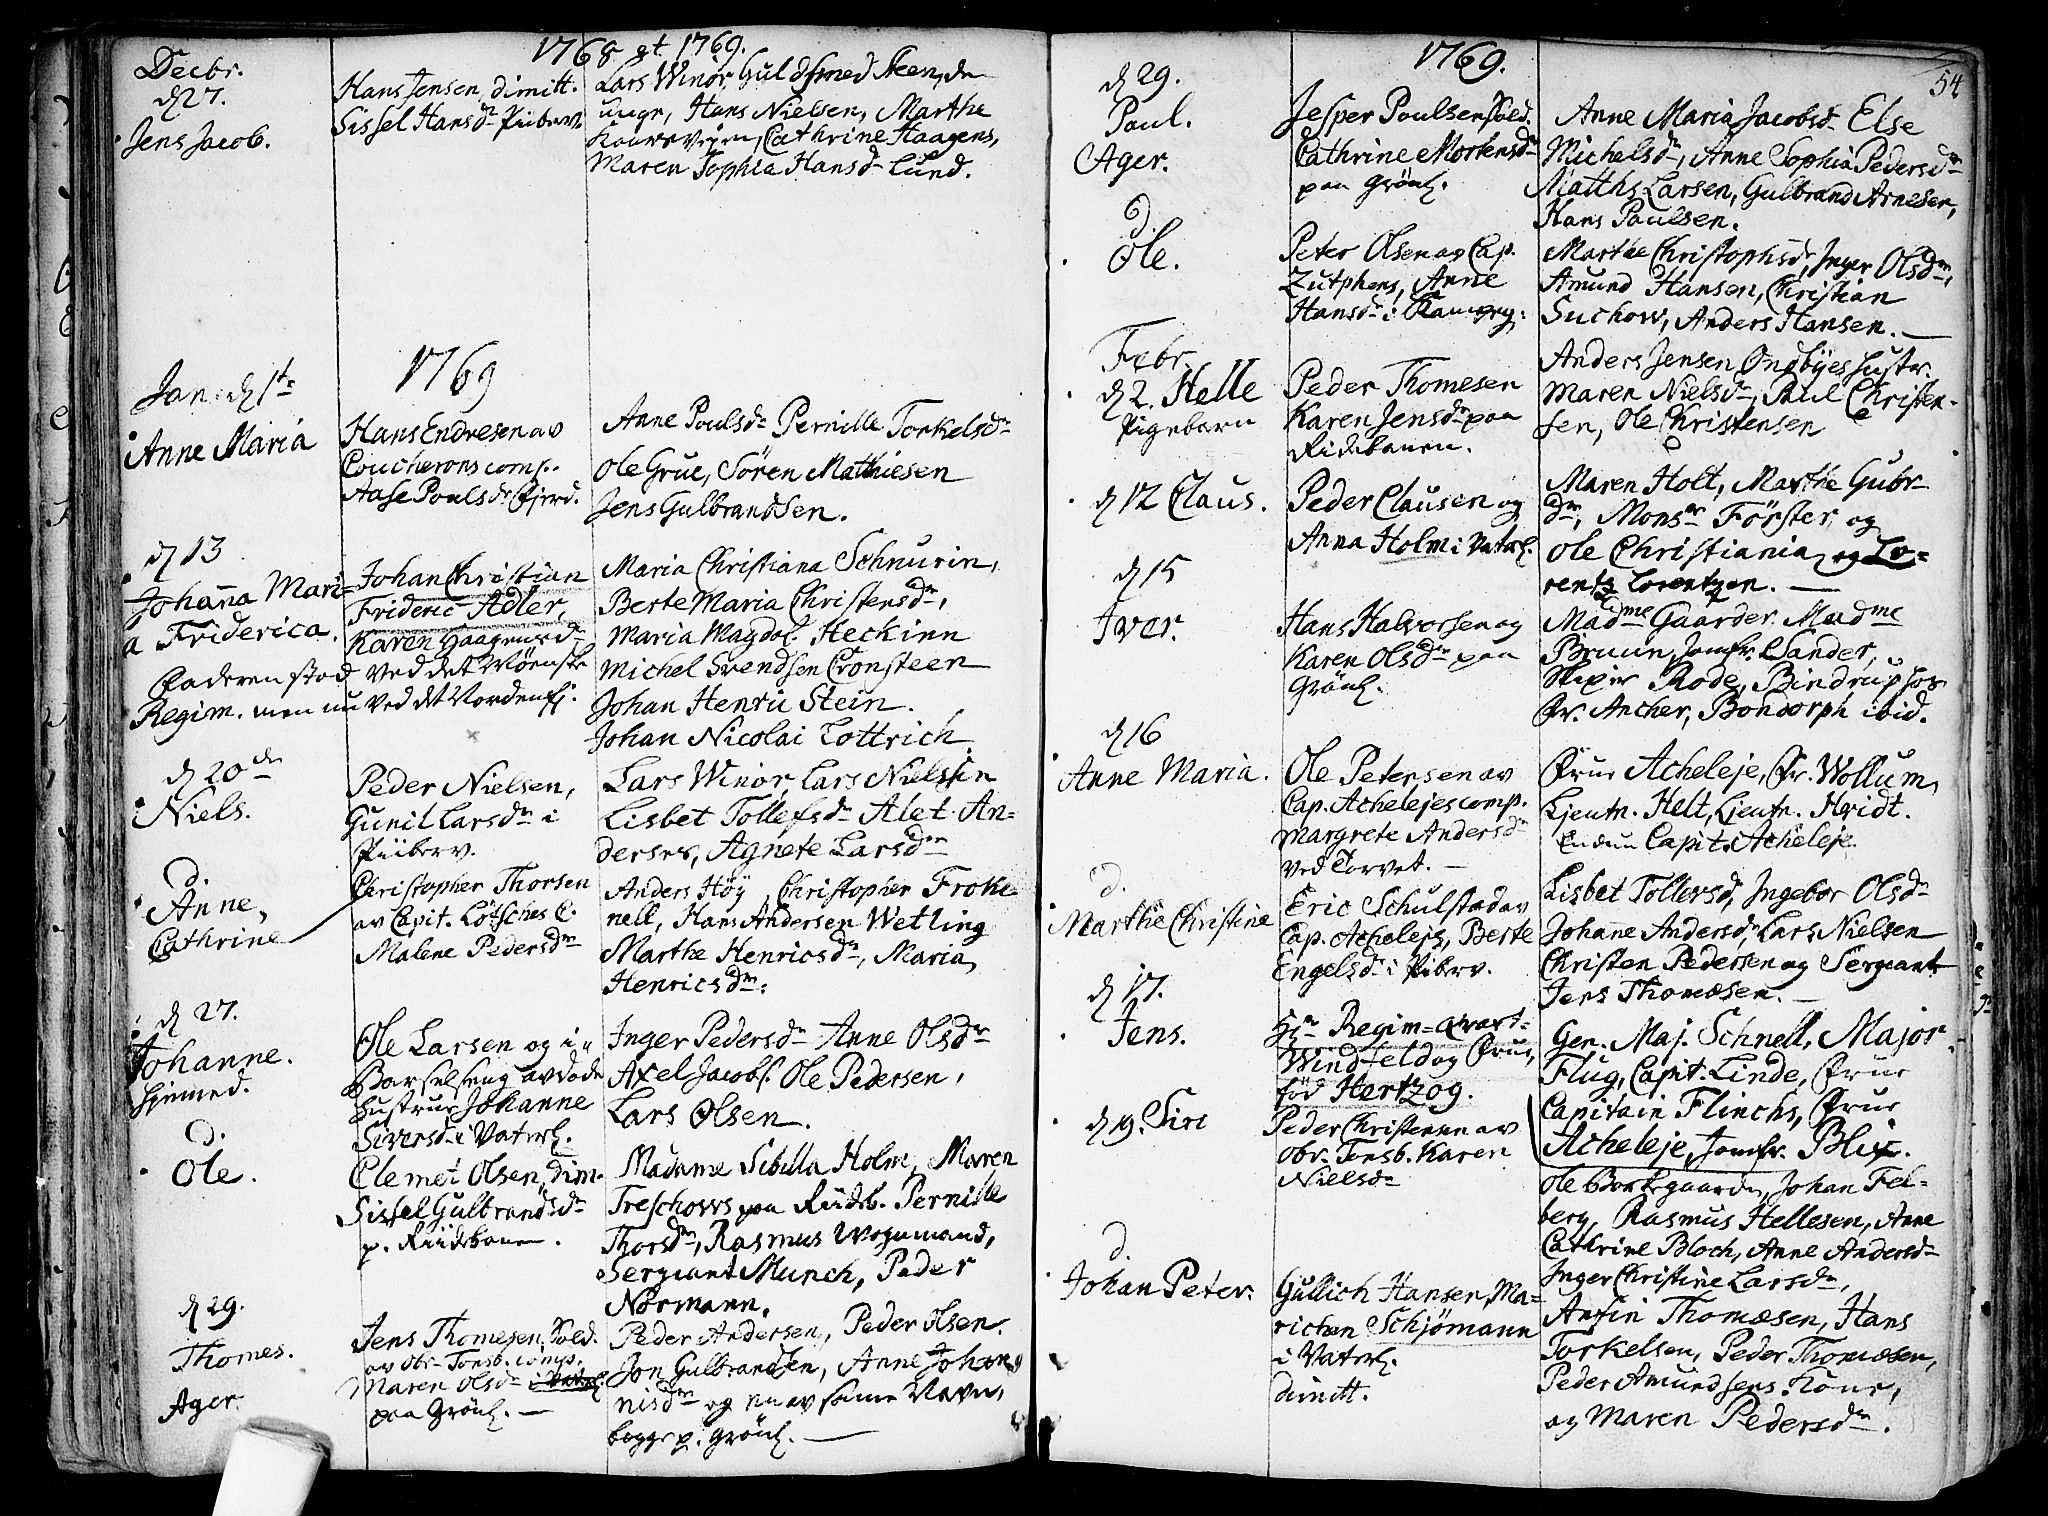 1768 et 1769.
Decbr.
d 27.
Jens Jacob.
Hans Jensen, dimitt.
Sissel Hansdr Piiberv.
Lars Winör, Guldsmed Steen, de
unge, Hans Nielsen, Marthe
Cathrine Haagens,
Maren Sophia Hansdr Lund.
1769
Jan. d 1te
Anne Maria
Hans Endresen av
Coucherons comp.
Aase Poulsdr Pjerd.
Anne Poulsdr Pernille Torkelsdr
Ole Grue, Sören Mathiesen
Jens Gulbrandsen.
d 13
Johanna Mari-
a Friderica.
Johan Christian
Frideric Adler,
Karen Haagensdr
Faderen stod ved det Mörenske
Regim. men nu ved det Nordenfj.
Maria Christiana Schnurin,
Berte Maria Christensdr,
Maria Magdal. Heckinn
Michel Svendsen Cronsteen
Johan Henric Stein.
Johan Nicolai Lottrich.
d 20de
Niels.
Peder Nielsen,
Gunil Larsdr i
Piiberv.
Lars Winör, Lars Nielsen
Lisbet Tollefsdr Alet An-
derses, Agnete Larsdr
d.
Anne,
Cathrine
Christopher Thorsen
av Capit. Lötsches C.
Malene Pedersdr
Anders Höy, Christopher Froke-
nell, Hans Andersen Wetling
Marthe Henricsdr, Maria
Henricsdr.
d 27.
Johanne.
hjemmed.
Ole Larsen og i
Barselseng avdöde
Hustrue Johanne
Siversdr i Vaterl.
Inger Pedersdr Anne Olsdr
Axel Jacobs. Ole Pedersen,
Lars Olsen.
d.
Ole.
Clemet Olsen, dim.
Sissel Gulbrandsdr
p. Riidebanen.
Madame Sibilla Holm, Maren
Treschows paa Riideb. Pernille
Thorsdr, Rasmus Wognmand,
Sergiant Munch, Peder
Normann.
d 29.
Thomes.
Ager.
Jens Thomesen, Sold.
av Obr. Tonsb. comp.
Maren Olsdr i Vaterl.
paa Grönl.
Peder Andersen, Peder Olsen.
Jon Gulbrandsen, Anne Johan-
nisdr og en av samme Navn,
begge p. Grönl.
1769.
54
d 29.
Paul.
Ager.
Jesper Poulsen Sold.
Cathrine Mortensdr
paa Grönl.
Anne Maria Jacobsdr Else
Michelsdr, Anne Sophia Pedersdr
Matths Larsen, Gulbrand Arnesen,
Hans Paulsen.
d.
Ole.
Peter Olsen av Cap.
Zutphens, Anne
Hansdr i
Marthe Christophsdr, Inger Olsdr,
Amund Hansen, Christian
Suchow, Anders Hansen.
Febr.
d 2. Helle
Pigebarn
Peder Thomesen
Karen Jensdr paa
Ridebanen.
Anders Jensen Ondbyes Hustr.
Maren Nielsdr, Paul Christen-
sen, Ole Christensen
d 12 Claus.
Peder Clausen og
Anna Holm i Vaterl.
Maren Holt, Marthe Gubr-
dr, Monsr Förster, og
Ole Christiania og Lo-
rentz Lorentzen.
d 15
Iver.
Hans Halvorsen og
Karen Olsdr paa
Grönl.
Madme Gaarder. Madme
Bruun, Jomfr. Sander,
Skiper Rode, Bindrup hos
Fr. Ancher, Bondorph ibid.
d 16
Anne Maria.
Ole Petersen av
Cap. Achelejes comp.
Margrete Andersdr
ved Torvet.
Frue Acheleje, Fr. Wollum,
Ljeutn. Helt, Ljeutn. Hvidt.
Endnu Capit. Acheleje.
d.
Marthe Christine
Eric Schulstad av
Cap. Achelejs, Berte
Engelsdr i Piberv.
Lisbet Tollersd, Ingebor Olsdr
Johane Andersdr, Lars Nielsen
Christen Pedersen og Sergeant
Jens Thomæsen.
d 17.
Jens.
Hr Regim=qvart-
Windfeld og Frue,
föd Hertzog.
Gen. Maj. Schnell, Major
Flug, Capit. Linde, Frue
Capitain Flinchs, Frue
Acheleje, Jomfr. Blix.
d 19. Siri
Peder Christensen av
Obr. Tonsb. Karen
Nielsdr
Ole Borkegaarden, Johan Fel-
berg, Rasmus Hellesen, Anne
Cathrine Bloch, Anne Andersdr
Inger Christine Larsdr,
d.
Johan Peter.
Gullich Hansen, Ma-
richen Schjömann
i Vaterl.
dimitt.
Anfin Thomæsen, Hans
Torkelsen, Peder Thomæsen,
Peder Amundsens Kone,
og Maren Pedersdr.